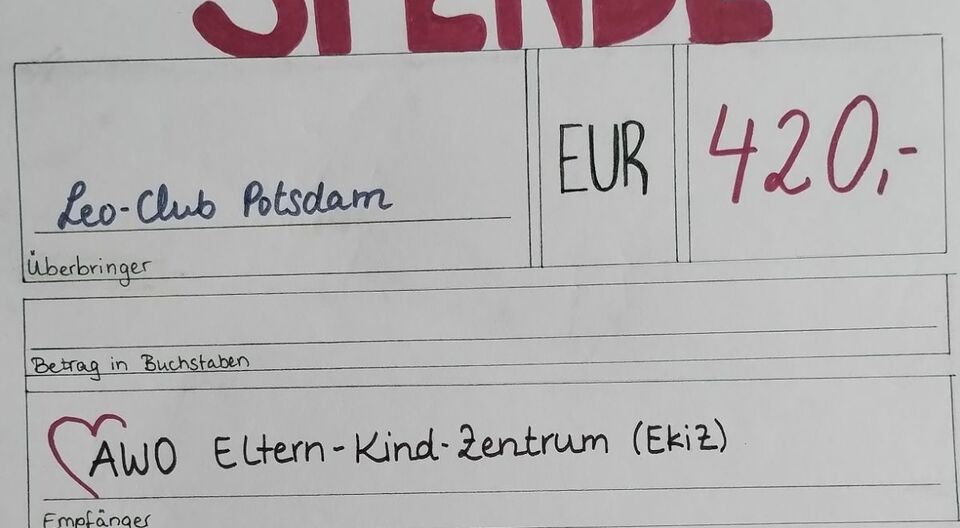 SPENDE
Leo-Club Potsdam
EUR
420,-
Überbringer
Betrag in Buchstaben
AWO Eltern-Kind-Zentrum (EkiZ)
Empfänger